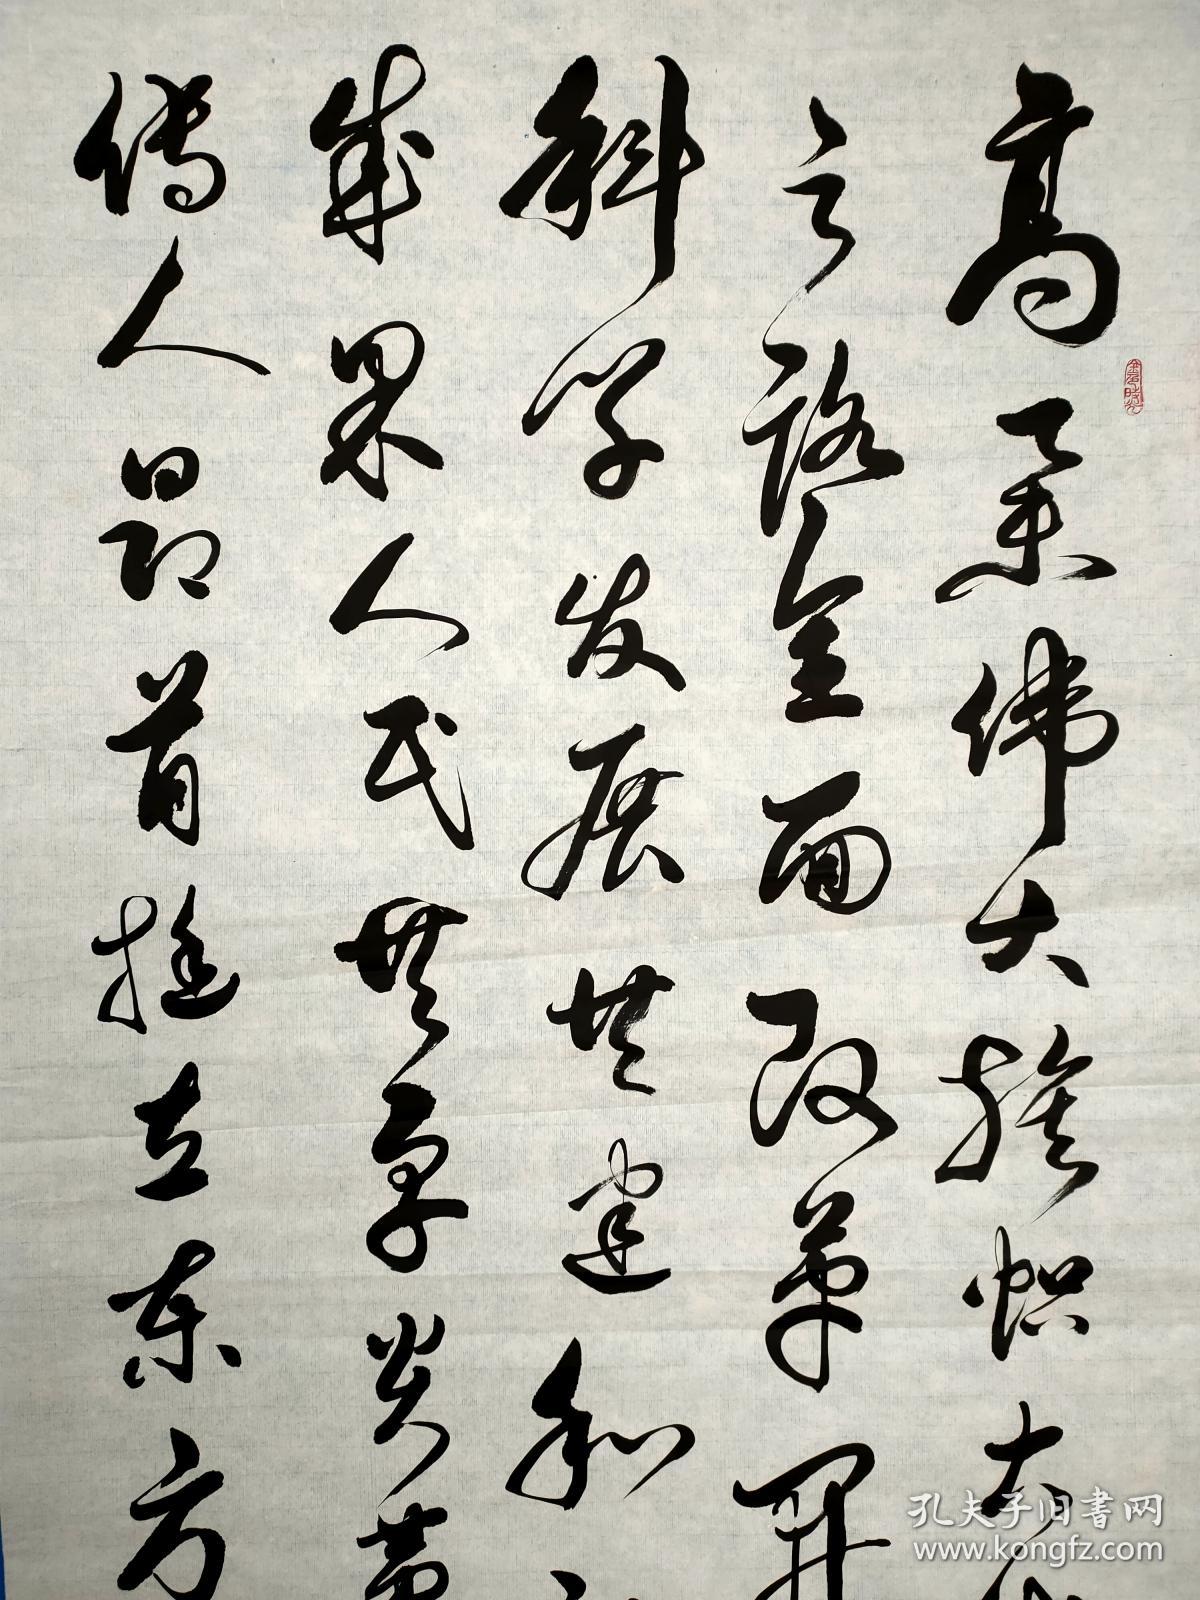 高举伟大旗帜大
之路全面改革开
科学发展共建和
成果人民共享炎黄
传人昂首挺立东方
孔夫子旧书网
www.kongfz.com